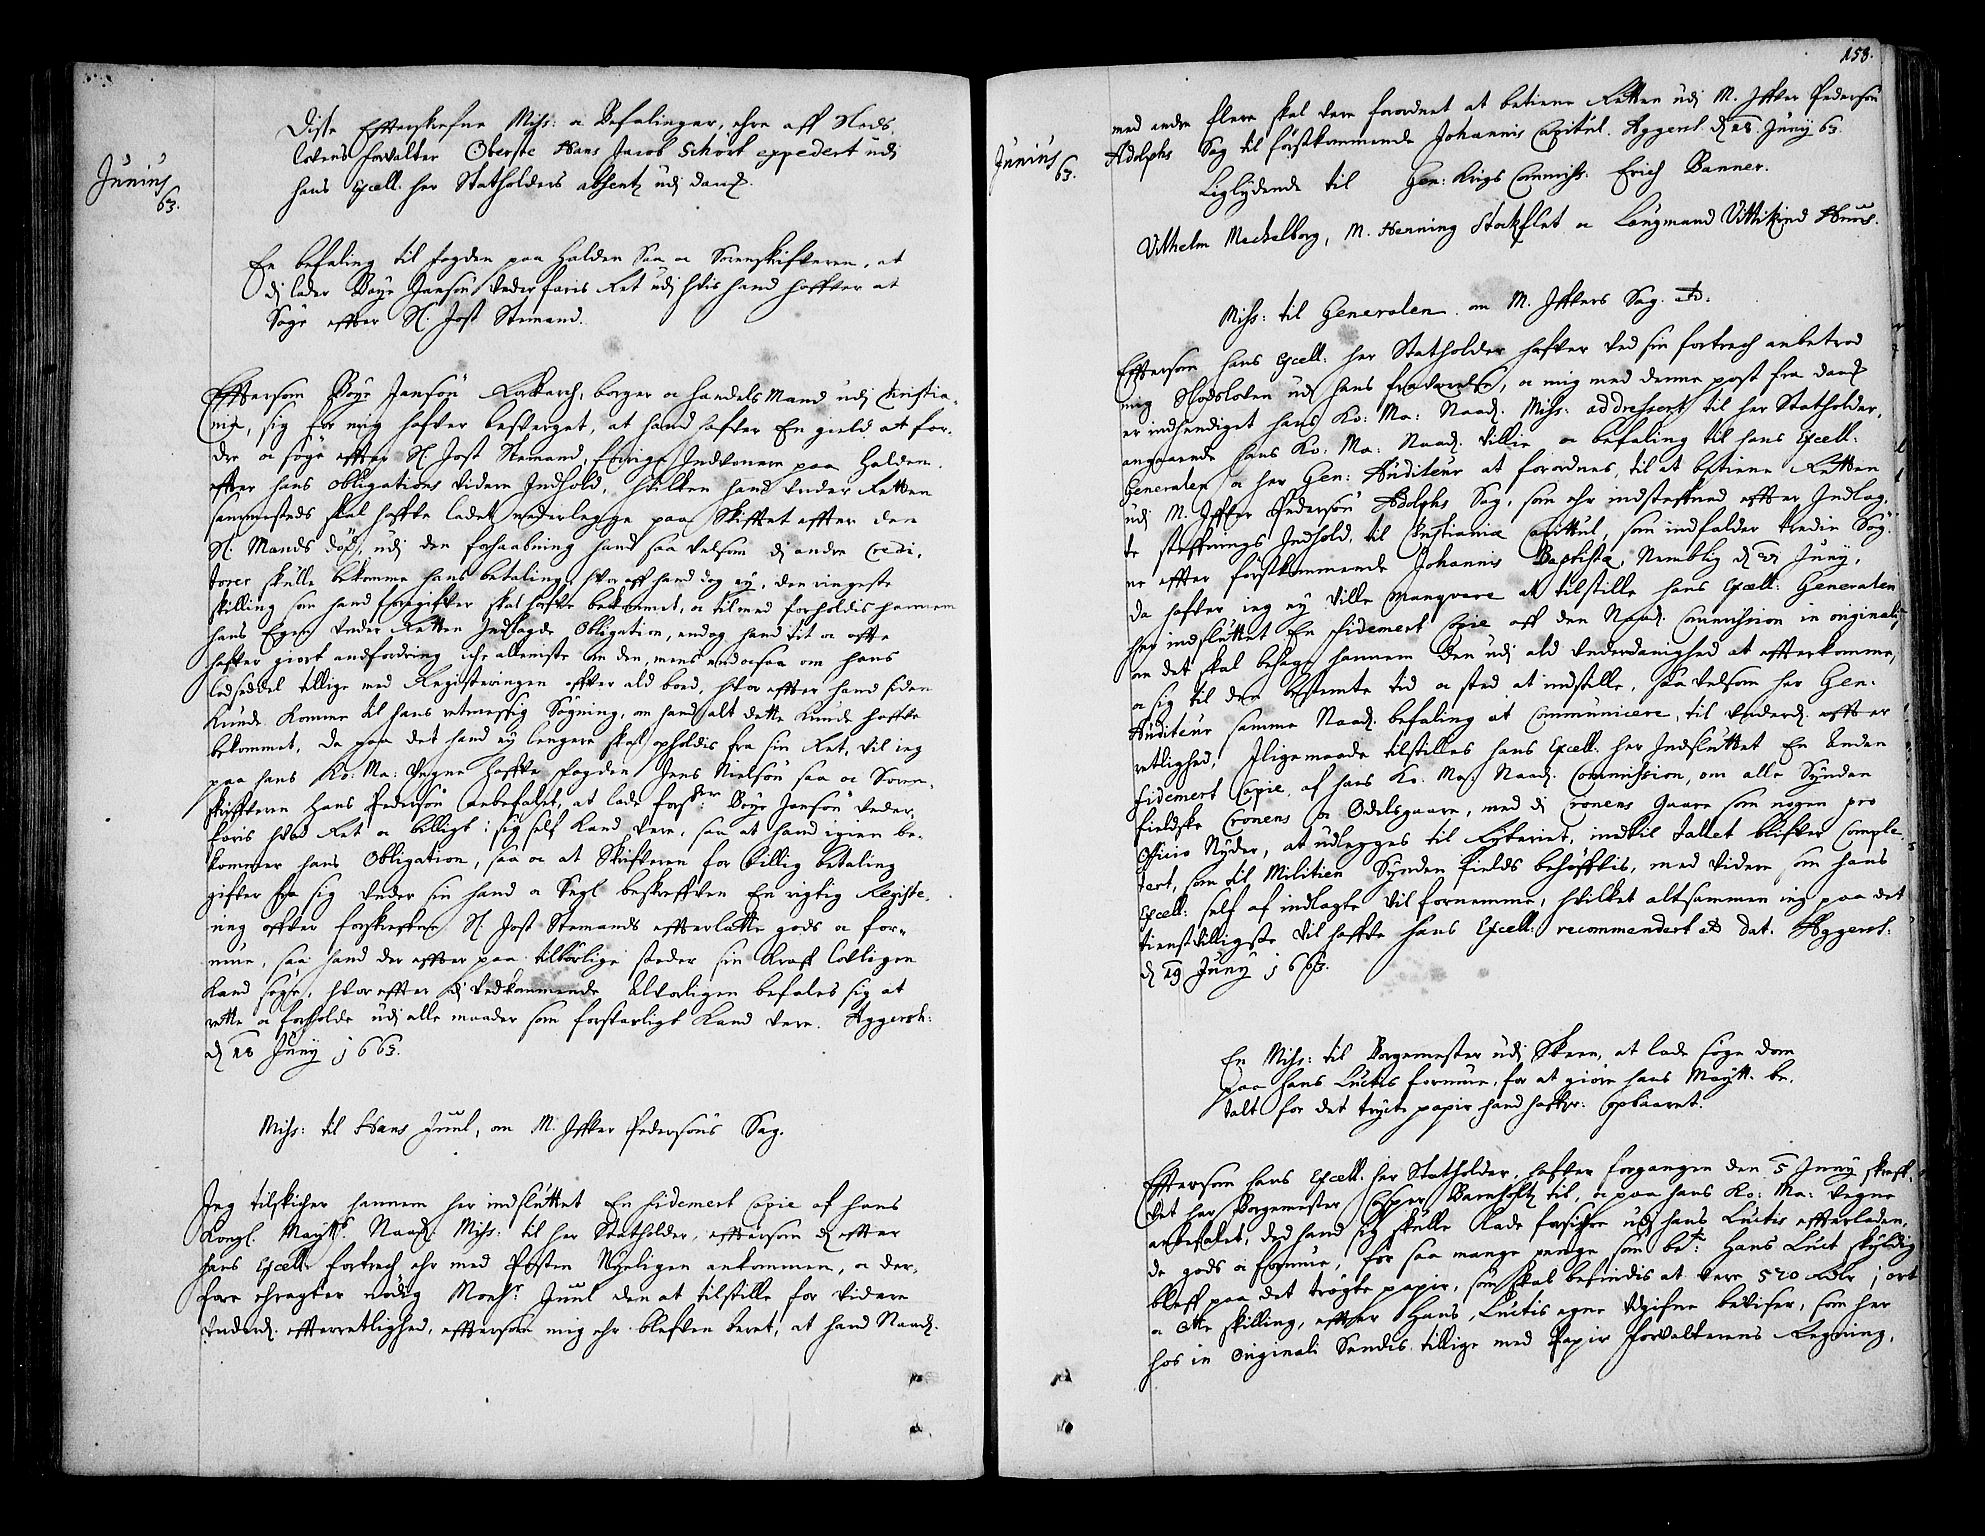 Junius
63.
Disse Effterskrefne Miss: oc Befalinger, ehre aff Slods
lovens forvalter Oberste Hans Jacob Schort expedert udj
hans Excell. her Statholders absentz udj Danz.
En befaling til fogden paa Halden Saa oc Sorenskrifveren, at
dj lader Boye Jansøn vederfaris Ret udj hvis hand haffver at
Søge effter Sl. Jost Stemand.
Effttersom Boye Jansøn, borger oc handels Mand udj Christia-
nia, sig for mig hafver besverget, at hand hafver En gield at for-
dre oc søge effter Sl. Jost Stemand, Indvonere paa Halden,
effter hans obligations videre Indhold, hvilken hand under Retten
sammesteds skal haffve ladet nederlegge paa Skifftet effter den
Sl: Mands død, udj den forhaabning hand saa velsom dj andre Credi-
torer skulle bekomme hans betaling, hvor aff hand dog ey, den ringeste
skilling som hand foregifver skal haffve bekommet, oc tilmed forholdis hannem
hans Egen under Retten Indlagde Obligation, endog hand tit oc offte
hafver giort andfordring icke alleniste om den, mens endocsaa om hans
lodseddel tillige med Registeringen offver ald boed, hvor effter hand siden
kunde komme til hans retmessig Søgning, om hand alt dette kunde haffve
bekommet, da paa det hand ey lengere skal opholdis fra sin Ret, vil ieg
paa hans Ko: Ma: vegne haffve fogden Jens Nielsøn saa oc Soren-
skriffveren Hans Pedersøn anbefalet, at lade forschr. Boye Jansøn veder-
faris hvad Ret oc billigt i sig self kand vere, saa at hand igien be-
kommer hans Obligation, saa oc at Skrifveren for billig betaling
gifver fra sig under sin hand oc Segl beskreffven En rigtig Registe-
ring offver forskrefne Sl. Jost Stemands effterlatte gods oc for-
mue, saa hand der effter paa tilbørlige steder sin
kand søge, hvor effter dj vedkommende alvorligen befales sig at
rette oc forholde udj alle maader som forsvarligt kand vere. Aggersh:
d. 18 Junij 1663.
Miss: til Hans Juul, om M. Iffver Pedersøns Sag.
Jeg tilskicker hannem her indsluttet En fidemert Copie af hans
Kongl. Maytts. Naad. Miss: til her Statholder, effttersom d. effter
hans Excell. fortrech ehr med Posten Nyeligen ankommen, oc der-
fore eragter nødig Monsr. Juul den at tilstille for videre
underd. effterretlighed, effttersom mig ehr bleffven beret, at hand Naad.
158.
Junius
63.
med andre flere skal vere forordnet at betiene Retten udj M. Iffver Pedersøn
Adolphs Sag til førstkommende Johannis Capitul. Aggersh. d. 18. Junij 63.
Liglydende til Gen: Krigs Commiss: Erich Banner.
Vilhelm Mechelborg, M. Henning Stockflet oc Laugmand Vittikind Huus.
Miss: til Generalen om M. Iffvers Sag etc:
Effttersom hans Excell: her Statholder hafver ved sin fortrech anbetrod
mig Slodsloven udj hans fraverelse, oc mig med denne post fra Danz
er indhendiget hans Ko: Ma: Naad: Miss: addresseret til her Statholder,
angaaende hans Ko: Ma: Naad. villie oc befaling til hans Excell:
Generalen oc her Gen: Auditeur at forordnes til at betiene Retten
udj M. Iffver Pedersøn Adolphs Sag, som ehr indsteffned effter Indlag-
te steffnings Indhold til Christianiæ Capittul, som indfalder tredie Søg-
ne effter førstkommende Johannis Baptistæ, Nemblig d. Junij,
da hafver ieg ey ville manqvere at tilstille hans Excell: Generalen
her indsluttet En fidemert Copie aff den Naad. Commission in originali
om det skal behage hannem den udj ald underdanighed at effterkomme,
oc sig til den bestemte tid oc sted at indstille, saa velsom her Gen:
Auditeur samme Naad. befaling at Communicere, til underd. effter
retlighed, Iligemaade tilstilles hans Excell. her Indsluttet En anden
fidemert Copie af hans Ko. May. Naad. Commission, om alle Synden
fieldske Cronens oc Odelsgaare, med dj Cronens gaare som nogen pro
Officio Nyder, at udlegges til Rytteriet, indtil tallet blifver Comple-
tert, som til Militien Synden fields behøffvis, med videre som hans
Excell: self af indlagte vil fornemme, hvilket altsammen ieg paa det
tienstvilligste vil haffve hans Excell: recommendert etc. Dat. Aggersh:
d. 19 Junij 1663.
En Miss: til Borgemester udj Skeen, at lade søge dom
paa Hans Luctes formue, for at giøre hans Maytt. be-
talt for det tryckte papir hand haffver opbaaret.
Effttersom hans Excell: her Statholder, hafver forgangen den 5 Junij skreff-
vet her Borgemester til, oc paa hans Ko: Ma: vegne
anbefalet, ded hand sig skulle lade forsickre udj hans Luctis effterladen-
de gods oc formue, for saa mange penge som bete. Hans Luct skyldig
bleff paa det trøgte papir, som skal befindis at vere 520 Rdlr 1 ort
oc otte skilling, effter Hans Luctis egne udgifne beviser, som her
hos in Originali Sendis tillige med Papir Forvalterens Regning,